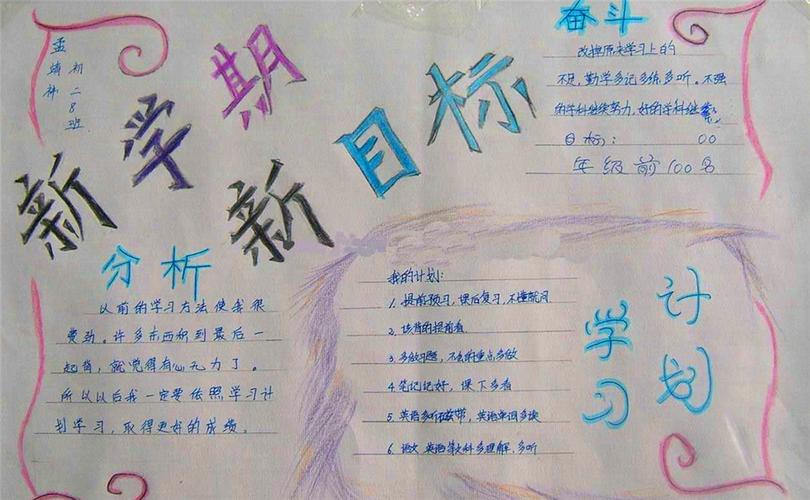 初二8班
新学期
新目标
奋斗
改掉原来学习上的
不足，勤学多记多练多听。不强
的学科继续努力，好的学科继续
目标：
年级前100名
分析
以前的学习方法使我很
费劲。许多东西积到最后一
起背，就觉得有心无力了。
所以以后我一定要依照学习计
划学习，取得更好的成绩。
我的计划：
1. 提前预习，课后复习，不懂就问
2. 该背的提前看
3. 多做习题，不会的重点多做
4. 笔记记好，课下多看
5. 英语多听磁带，英语单词多读
6. 语文 英语等文科多理解，多听
学习
计划